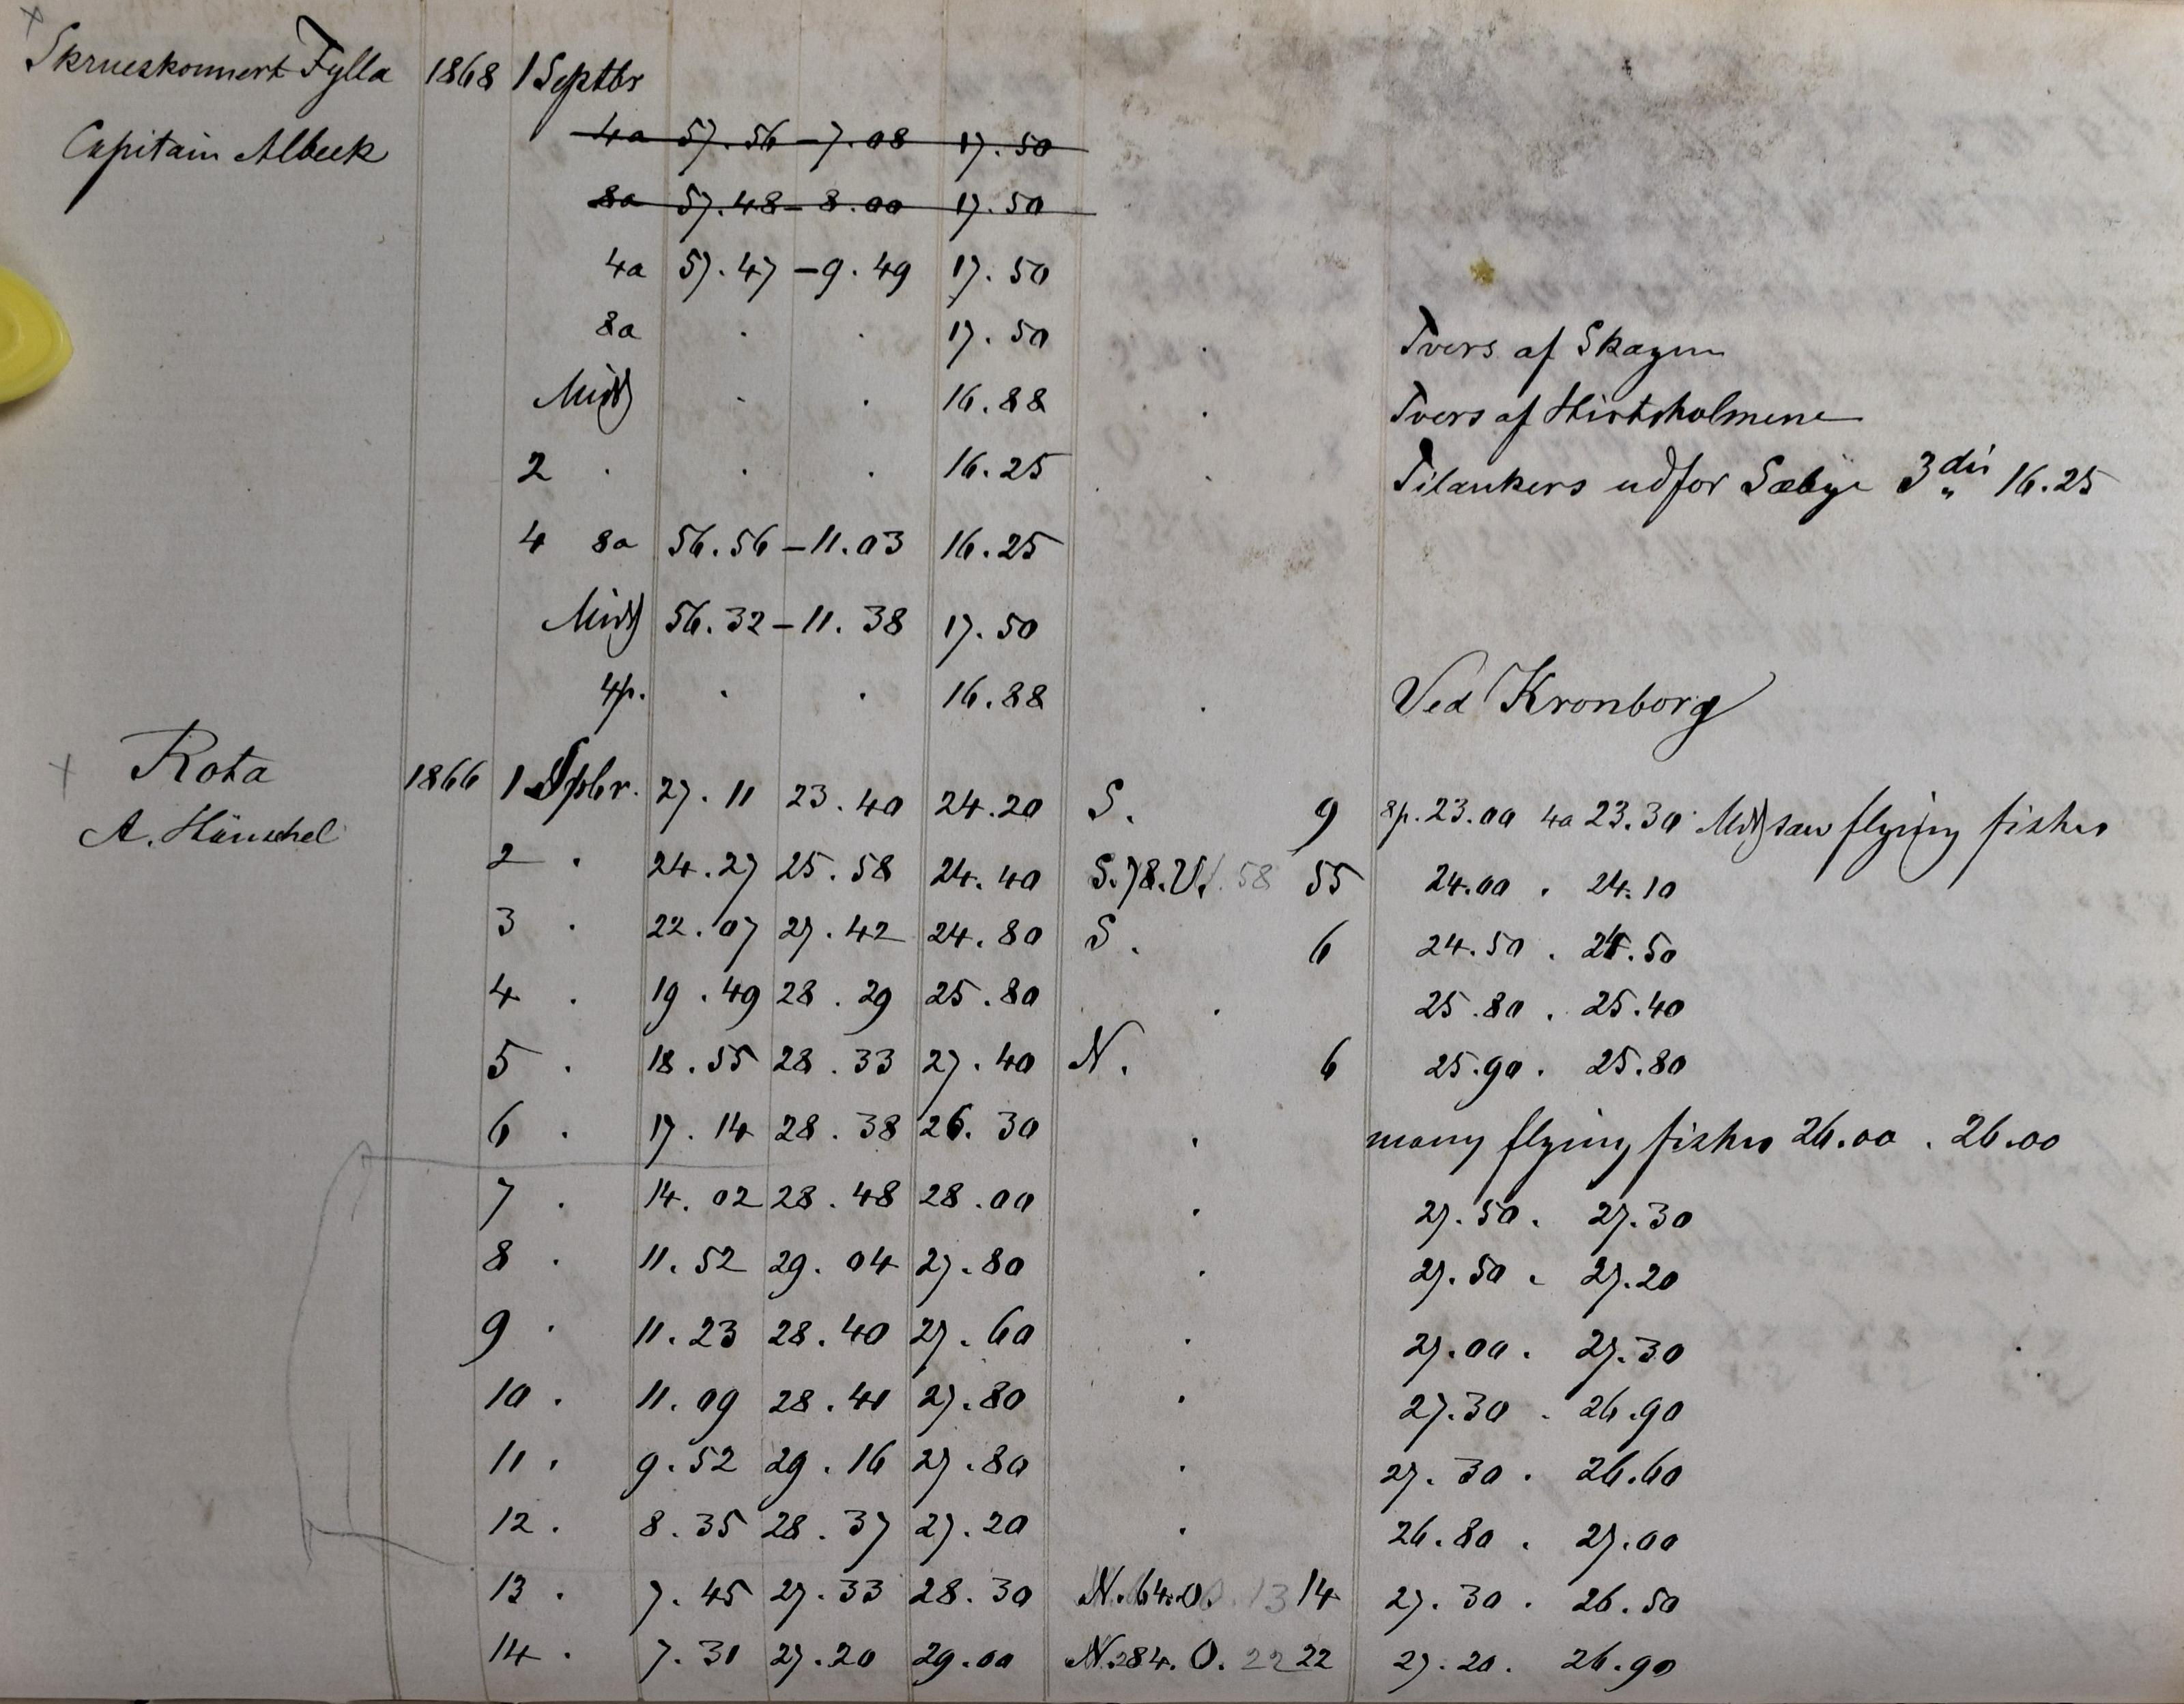 Skrueskonnert Fylla 1868 1 Septbr
Capitain Albeck 4a 57.56 – 7.08 17.50
8a 57.48 – 8.00 17.50
4a 57.47 – 9.49 17.50
8a . . 17.50 . Tvers af Skagen
Midd . . 16.88 . Tvers af Hirtsholmene
2 . . . 16.25 . Tilankers udfor Sæbye 3 die " 16.25
4 8a 56.56 – 11.03 16.25
Midd 56.32 – 11.38 17.50
4p. . . 16.88 . Ved Kronborg
Rota 1866 1 Spbr. 27.11 23.40 24.20 S. 9 8p. 23.00 4a 23.30 Midd saw flying fishes
A. Hänschel
2 . 24.27 25.58 24.40 S.78.V. 58 55 24.00 . 24.10
3 . 22.07 27.42 24.80 S. 6 24.50 . 24.50
4 . 19.49 28.29 25.80 . 25.80 . 25.40
5 . 18.55 28.33 27.40 N. 6 25.90 . 25.80
6 . 17.14 28.38 26.30 . many flying fishes 26.00 . 26.00
7 . 14.02 28.48 28.00 . 27.50 . 27.30
8 . 11.52 29.04 27.80 . 27.50 . 27.20
9 . 11.23 28.40 27.60 . 27.00 . 27.30
10 . 11.09 28.41 27.80 . 27.30 . 26.90
11 . 9.52 29.16 27.80 . 27.30 . 26.60
12 . 8.35 28.37 27.20 . 26.80 . 27.00
13 . 7.45 27.33 28.30 N.64.O. 13 14 27.30 . 26.50
14 . 7.31 27.20 29.00 N.84.O. 22 22 27.20 . 26.90